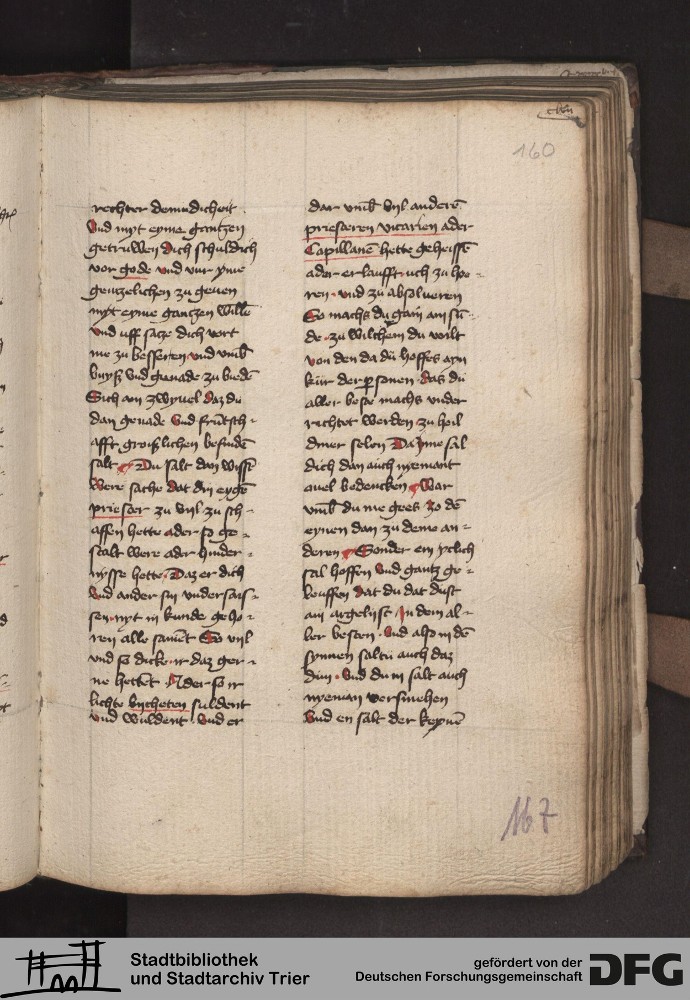 160
rechter demudicheit
Vnd myt eyme gantzen
getruwen dich schuldich
vor gode vnd vur yme
gentzelichen zu geuen
myt eyme gantzen wille
vnd uff satze dich vort
me zu besseren vnd vmb
buyß vnd genade zu biedē
Sich an zwyuel daz du
dan genade vnd frůtsch-
afft großlichen befindē
salt Du salt dan wissē
Were sache dat din eygē
priester zu vyl zu sch-
affen hette ader so ge-
stalt were ader hinder-
nysse hette Daz er dich
Vnd ander sin vndersais-
sen nyt in kunde geho-
ren alle samēt So vyl
vnd so dicke ir daz ger-
ne hettet Ader so ir
lichte bichten suldent
vnd wuldent vnd er
dar vmb vyl anderē
priesteren vicarien ader
Capillanē hette geheissē
ader erlaufft uch zu hoe-
ren vnd zu absolueren
So machs du gain an sū-
de zu wilchem du wilt
von den da du hoffes ayn
kůr der psonen das du
aller beste machs vnder
richtet werden zu heil
diner selen Da yme sal
dich dan auch nyemant
auel bedencken War
vmb du me gees zo dē
eynen dan zu deme an-
deren Sonder ein yclich
sal hoffen vnd gantz ge-
leuffen dat du dat dust
an argelist in dem al-
ler besten Vnd also in dē
synnen saltu auch daz
dun Vnd du in salt auch
nyeman versmehen
Vnd en salt der keynē
167
Stadtbibliothek
und Stadtarchiv Trier
gefördert von der
Deutschen Forschungsgemeinschaft
DFG